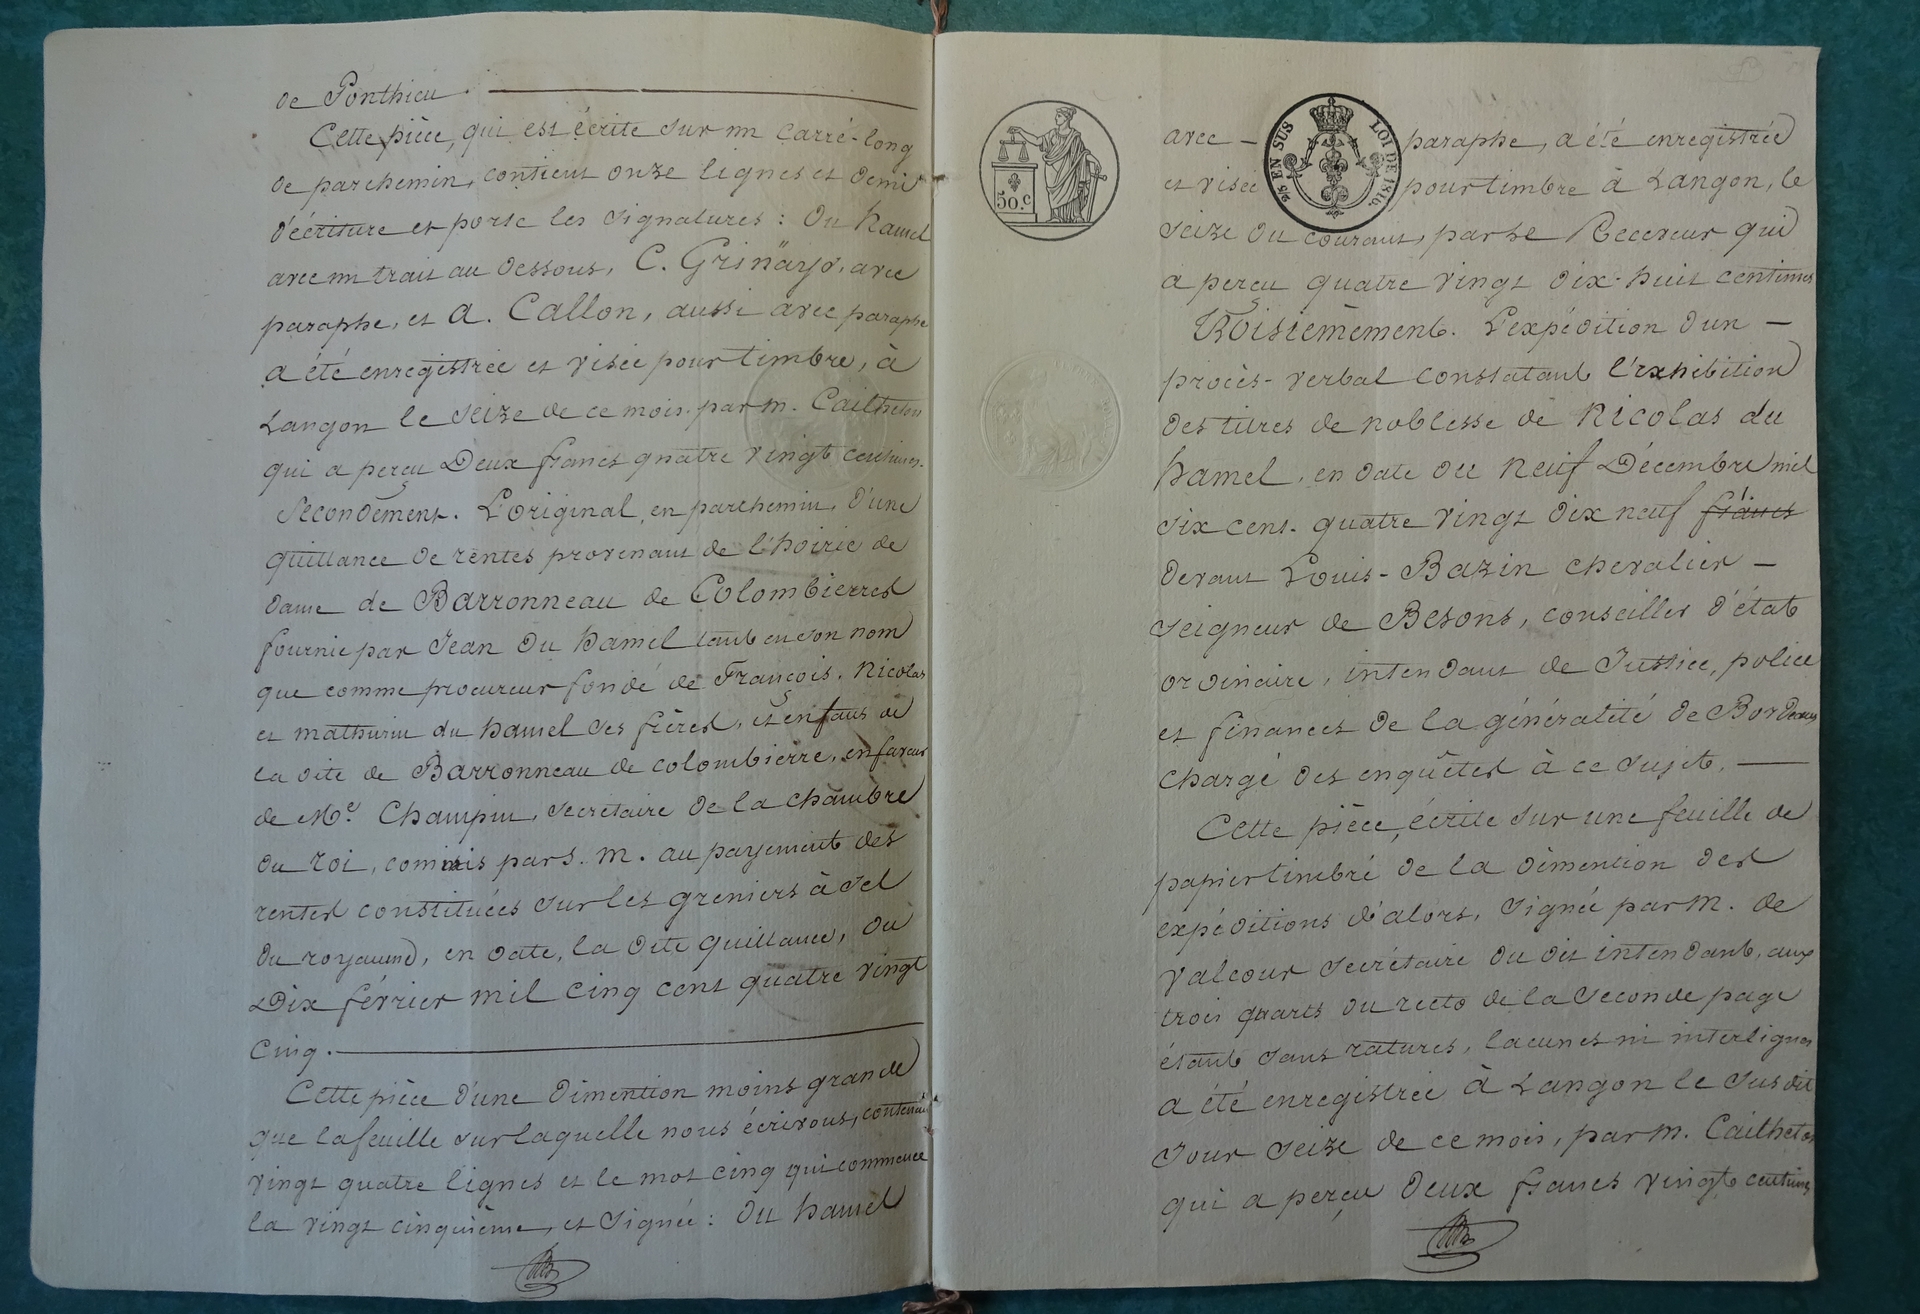 de Ponthieu.
Cette pièce, qui est écrite sur un carré-long
de parchemin, contient onze lignes et demie
d'écriture et porte les signatures : Du hamel
avec un trait au dessous, C. Grinäyo, avec
paraphe, et A. Callon, aussi avec paraphe
a été enregistrée et visée pour timbre, à
Langon le seize de ce mois. par m. Cailheton
qui a perçu Deux francs quatre vingt centimes.
Secondement. L'original, en parchemin, d'une
quittance de rentes provenant de l'hoirie de
dame de Barronneau de Colombierres
fournie par Jean Du hamel tant en son nom
que comme procureur fondé de François, Nicolas
et mathurin du hamel ses frères, et enfans de
la dite de Barronneau de colombierre, en faveur
de Me. Champin, secrétaire de la chambre
du roi, commis par S. M. au payement des
rentes constituées sur les greniers à sel
du royaume, en date, la dite quittance, du
Dix février mil cinq cent quatre vingt
cinq.
Cette pièce d'une dimention moins grande
que la feuille sur laquelle nous écrivons, contenant
vingt quatre lignes et le mot cinq qui commence
la vingt cinquième, et signée : Du hamel
50.c
2/5 EN SUS LOI DE 1816.
avec paraphe, a été enregistrée
et visée pour timbre à Langon, le
seize du courant, par le Receveur qui
a perçu quatre vingt dix-huit centimes
Troisièmement. L'expédition d'un
procès-verbal constatant l'exhibition
des titres de noblesse de Nicolas du
hamel, en date du neuf Décembre mil
six cent quatre vingt dix neuf francs
devant Louis-Bazin chevalier
seigneur de Besons, conseiller d'état
ordinaire, intendant de Justice, police
et finances de la généralité de Bordeaux
chargé des enquêtes à ce sujet.
Cette pièce, écrite sur une feuille de
papier timbré de la dimention des
expéditions d'alors, signée par M. de
Valcour secrétaire du dit intendant, aux
trois quarts du recto de la seconde page
étant sans ratures, lacunes ni interlignes
a été enregistrée à Langon le susdit
jour seize de ce mois, par M. Cailheton
qui a perçu deux francs vingt centimes